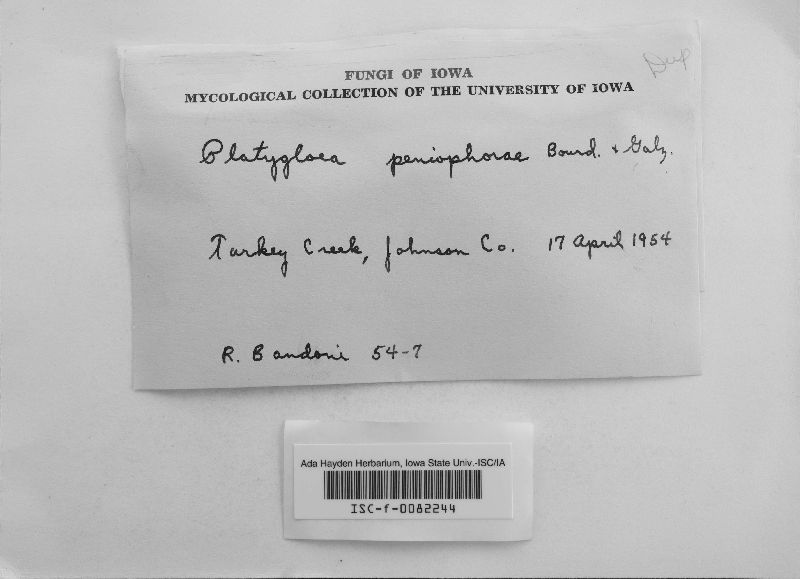 Dup
FUNGI OF IOWA
MYCOLOGICAL COLLECTION OF THE UNIVERSITY OF IOWA
Platygloea peniophorae Bourd. + Galz.
Turkey Creek, Johnson Co. 17 April 1954
R. Bandoni 54-7
Ada Hayden Herbarium, Iowa State Univ.-ISC/IA
ISC-f-0082244